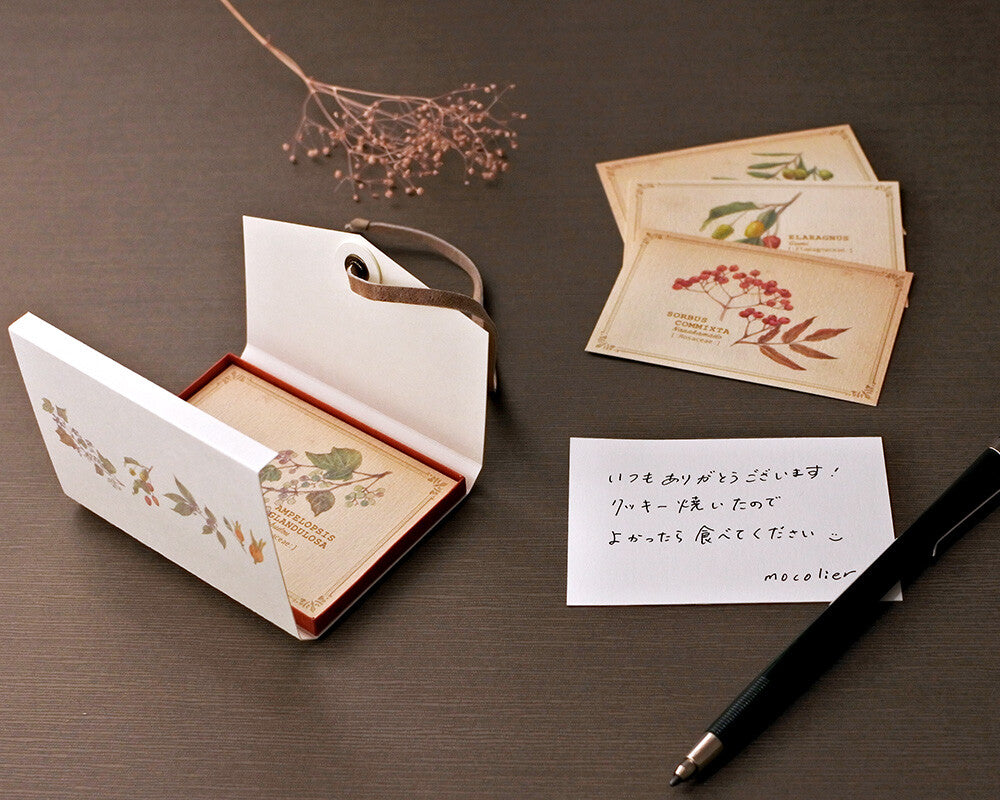 ELAEAGNUS
Gumi
[ Elaeagnaceae ]
SORBUS
COMMIXTA
Nanakamado
[ Rosaceae ]
AMPELOPSIS
GLANDULOSA
いつもありがとうございます!
クッキー焼いたので
よかったら食べてください
mocolier